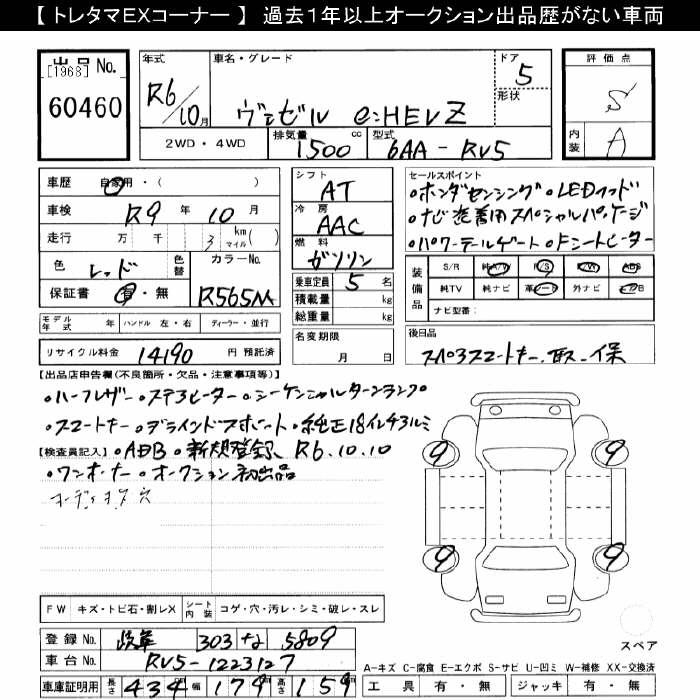 【 トレタマEXコーナー 】 過去1年以上オークション出品歴がない車両
出品 No.
[1968]
60460
年式
R6/10月
車名・グレード
ヴェゼル e:HEV Z
ドア
5
形状
評価点
S
内装
A
2WD・4WD
排気量
1500 cc
型式
6AA-RV5
車歴 自家用・( )
車検 R9 年 10 月
走行 万 千 3 km マイル ( )
色 レッド 色替
カラーNo.
R565M
保証書 有・無
シフト
AT
冷房
AAC
燃料
ガソリン
乗車定員 5 名
積載量 kg
総重量 kg
セールスポイント
・ホンダセンシング・LEDヘッド
・ナビ装着用スペシャルパッケージ
・パワーテールゲート・Fシートヒーター
装備品
S/R 純A/W P/S P/W ABS
純TV 純ナビ 革シート 外ナビ エアB
ナビ型番:
モデル年式 年 ハンドル 左・右 ディーラー・並行
リサイクル料金 14190 円 預託済
名変期限
月 日
後日品
スペアスマートキー、取、保
【出品店申告欄(不良箇所・欠品・注意事項等)】
・ハーフレザー・ステアヒーター・シーケンシャルターンランプ
・スマートキー・ブラインドスポット・純正18インチアルミ
【検査員記入】・ADB・新規登録、R6.10.10
・ワンオーナー・オークション初出品
9 9
9 9
スペア
FW キズ・トビ石・割レX シート内装 コゲ・穴・汚レ・シミ・破レ・スレ
登録 No. 岐阜 303 な 5809
車台 No. RV5-1223127
車庫証明用 長さ 434 幅 179 高さ 159
A-キズ C-腐食 E-エクボ S-サビ U-凹ミ W-補修 XX-交換済
工具 有・無 ジャッキ 有・無